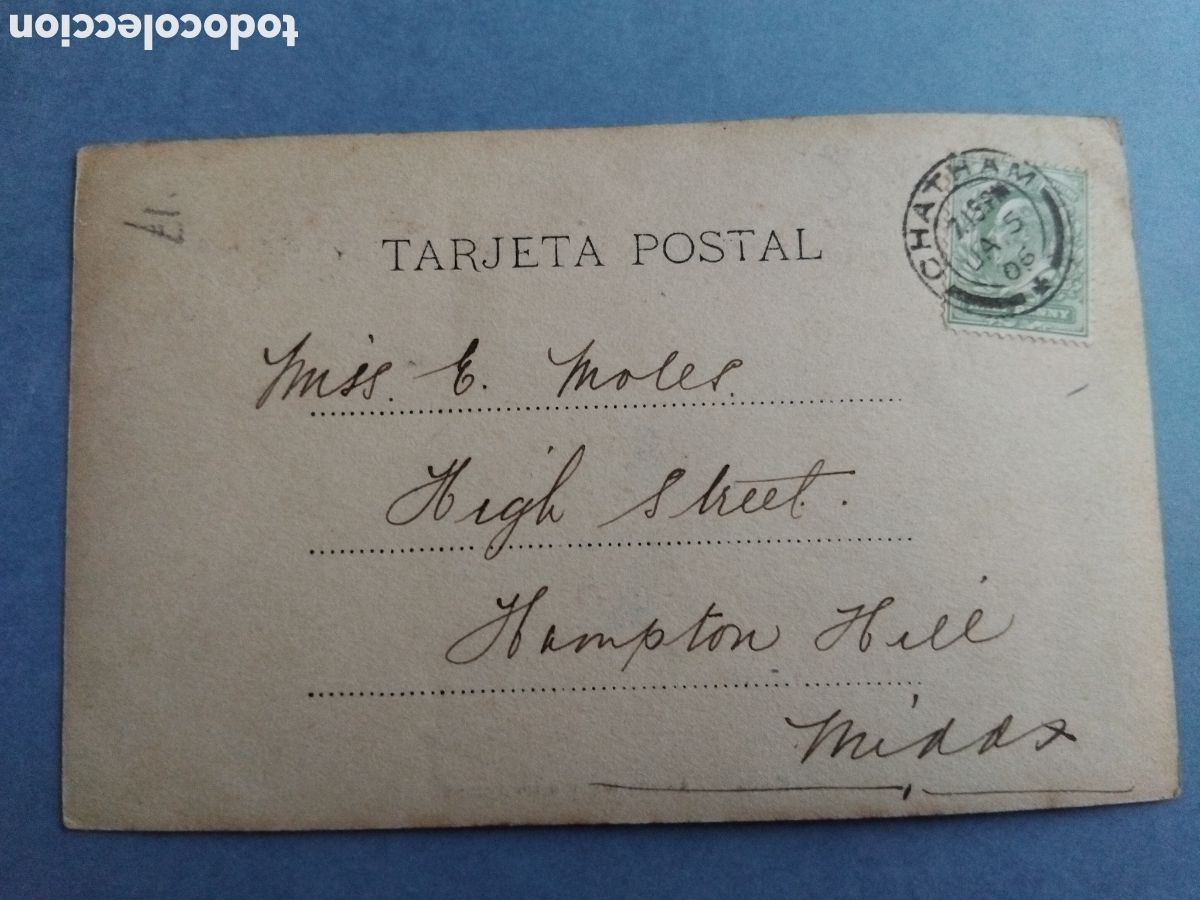 todocoleccion
£1.
TARJETA POSTAL
CHATHAM
7.15PM
JA 5
06
Miss. E. Moles.
High Street.
Hampton Hill
Middx